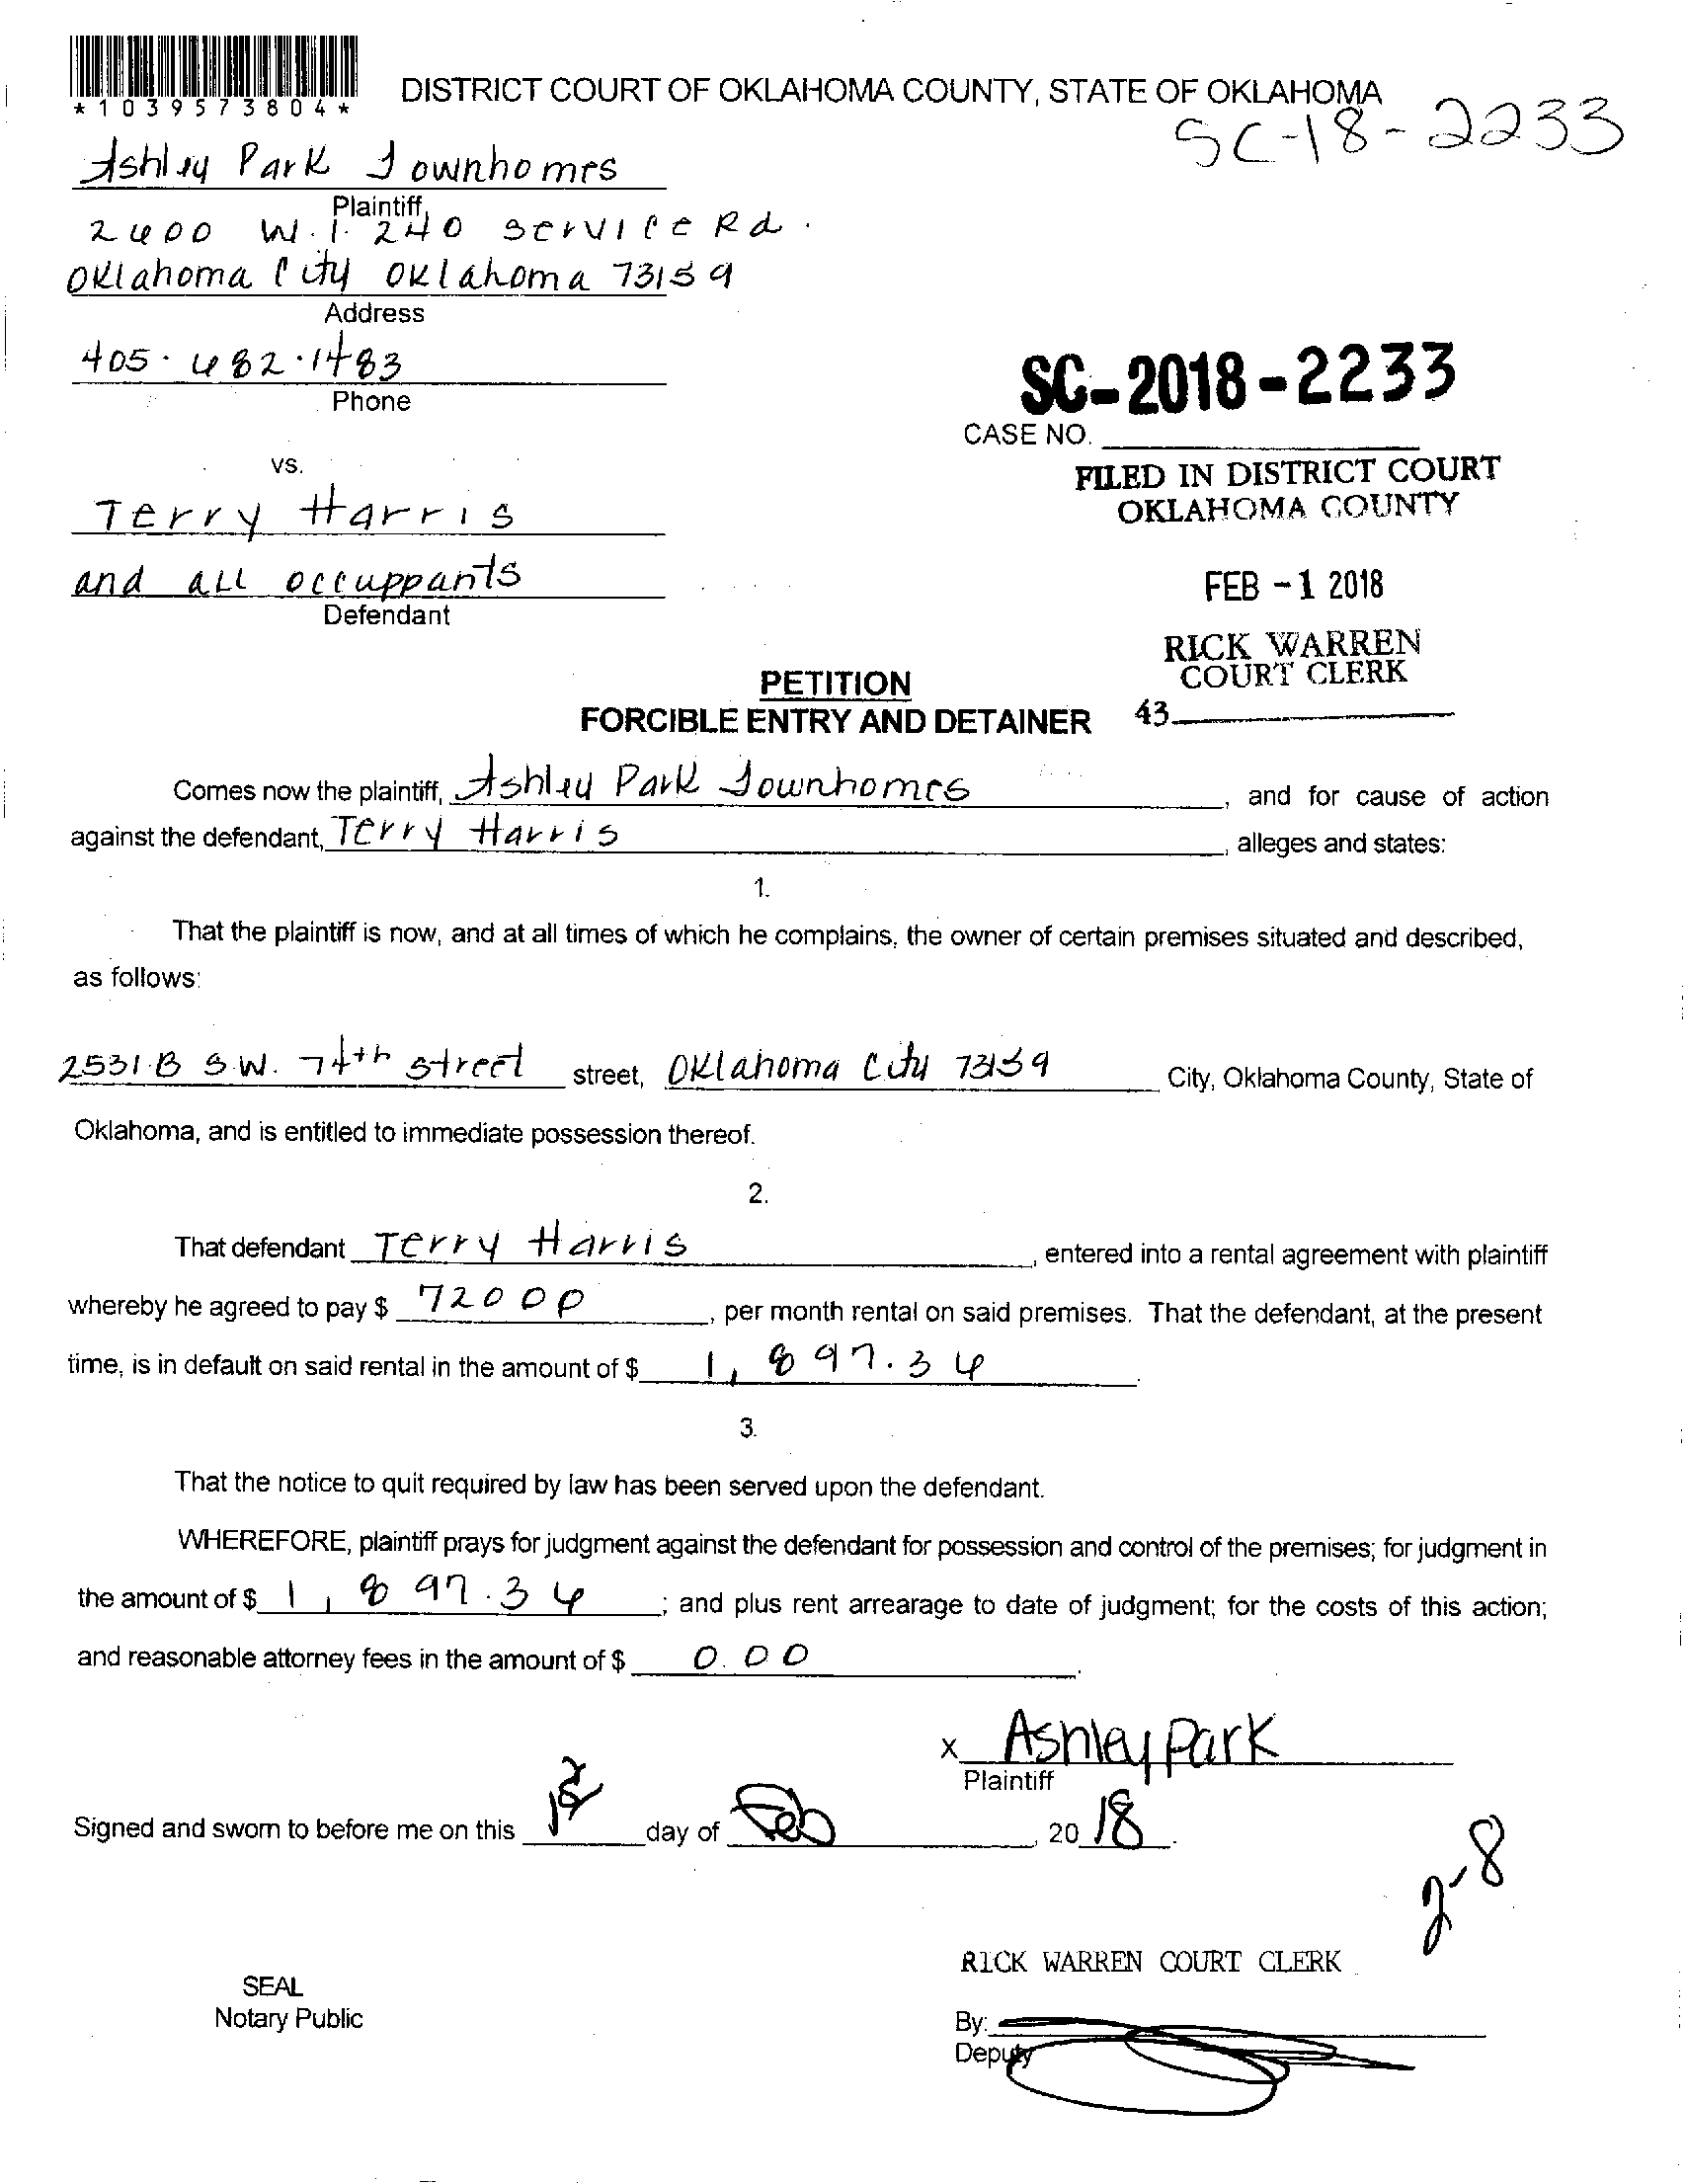 *1039573804*
DISTRICT COURT OF OKLAHOMA COUNTY, STATE OF OKLAHOMA
SC-18-2233
Ashley Park Townhomes
Plaintiff,
2600 W. I. 240 service Rd.
Oklahoma City Oklahoma 73159
Address
405.682.1483
Phone
SC-2018-2233
CASE NO.
vs.
FILED IN DISTRICT COURT
OKLAHOMA COUNTY
Terry Harris
and all occuppants
Defendant
FEB -1 2018
RICK WARREN
COURT CLERK
43
PETITION
FORCIBLE ENTRY AND DETAINER
Comes now the plaintiff, Ashley Park Townhomes, and for cause of action
against the defendant, Terry Harris, alleges and states:
1.
That the plaintiff is now, and at all times of which he complains, the owner of certain premises situated and described,
as follows:
2531 B S.W. 74th street street, Oklahoma City 73159 City, Oklahoma County, State of
Oklahoma, and is entitled to immediate possession thereof.
2.
That defendant Terry Harris, entered into a rental agreement with plaintiff
whereby he agreed to pay $ 720 00, per month rental on said premises. That the defendant, at the present
time, is in default on said rental in the amount of $ 1,897.36.
3.
That the notice to quit required by law has been served upon the defendant.
WHEREFORE, plaintiff prays for judgment against the defendant for possession and control of the premises; for judgment in
the amount of $ 1,897.36; and plus rent arrearage to date of judgment; for the costs of this action;
and reasonable attorney fees in the amount of $ 0.00.
x Ashley Park
Plaintiff
Signed and sworn to before me on this day of Feb, 2018.
2-8
RICK WARREN COURT CLERK
SEAL
Notary Public
By:
Deputy